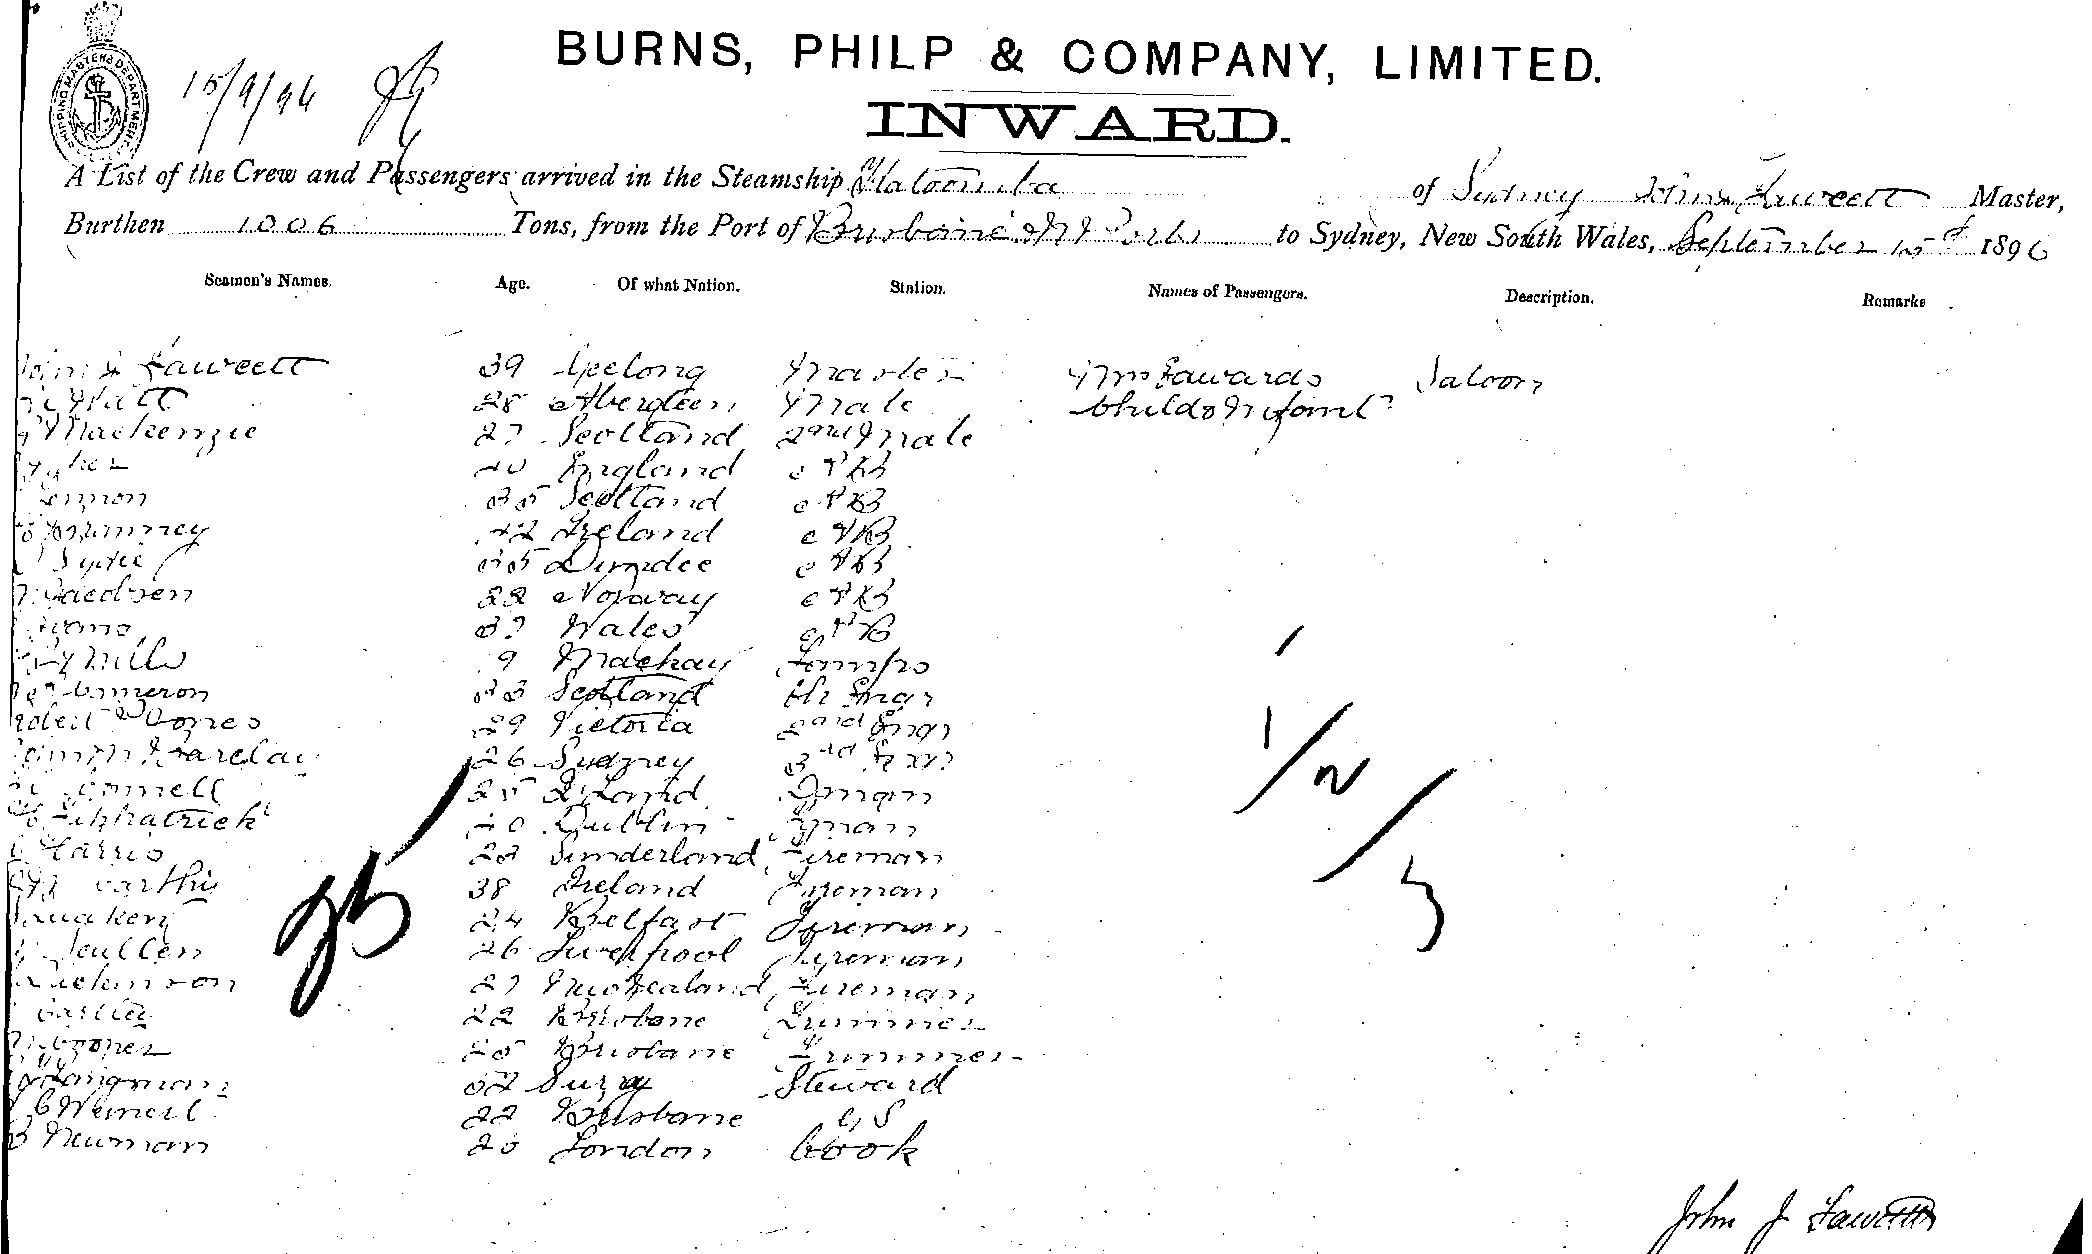 SHIPPING MASTERS DEPARTMENT
15/9/96
BURNS, PHILP & COMPANY, LIMITED.
INWARD.
A List of the Crew and Passengers arrived in the Steamship Katoomba of Sydney John J Fawcett Master,
Burthen 1006 Tons, from the Port of Brisbane & N Ports to Sydney, New South Wales, September 15th 1896
Seamen's Names. Age. Of what Nation. Station. Names of Passengers. Description. Remarks
John J Fawcett 39 Geelong Master Mrs Edwards Saloon
Watt 28 Aberdeen Mate Child & Infant
Mackenzie 27 Scotland 2nd Mate
40 England AB
Lennon 35 Scotland AB
42 Ireland AB
35 Dundee AB
Jacobsen 22 Norway AB
Evans 37 Wales AB
Mills 19 Mackay Lamps
Cameron 33 Scotland Ch Engr
Robert Jones 29 Victoria 2nd Engr
Barclay 26 Sydney 3rd Engr
Connell 25 Q'land Dman
Fitzpatrick 40 Dublin
Harris 28 Sunderland Fireman
McCarthy 38 Ireland Fireman
24 Belfast Fireman
Scullen 26 Liverpool Fireman
Dickinson 27 New Zealand Fireman
22 Brisbane Trimmer
Cooper 25 Brisbane Trimmer
Langman 32 Surry Steward
22 Brisbane GS
Newman 20 London Cook
1
1/2/3
John J Fawcett